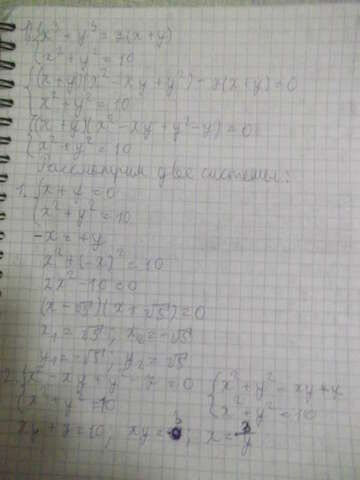 {x³ + y³ = 7(x+y)
x² + y² = 10
{(x+y)(x² - xy + y²) - 7(x+y) = 0
x² + y² = 10
{(x+y)(x² - xy + y² - 7) = 0
x² + y² = 10
Рассмотрим две системы:
1. {x + y = 0
x² + y² = 10
-x = +y
x² + (-x)² = 10
2x² - 10 = 0
(x - √5)(x + √5) = 0
x₁ = √5; x₂ = -√5
y₁ = -√5; y₂ = √5
2. {x² - xy + y² - 7 = 0 {x² + y² = xy + 7
x² + y² = 10 x² + y² = 10
xy + 7 = 10, xy = 3; x = 3/y